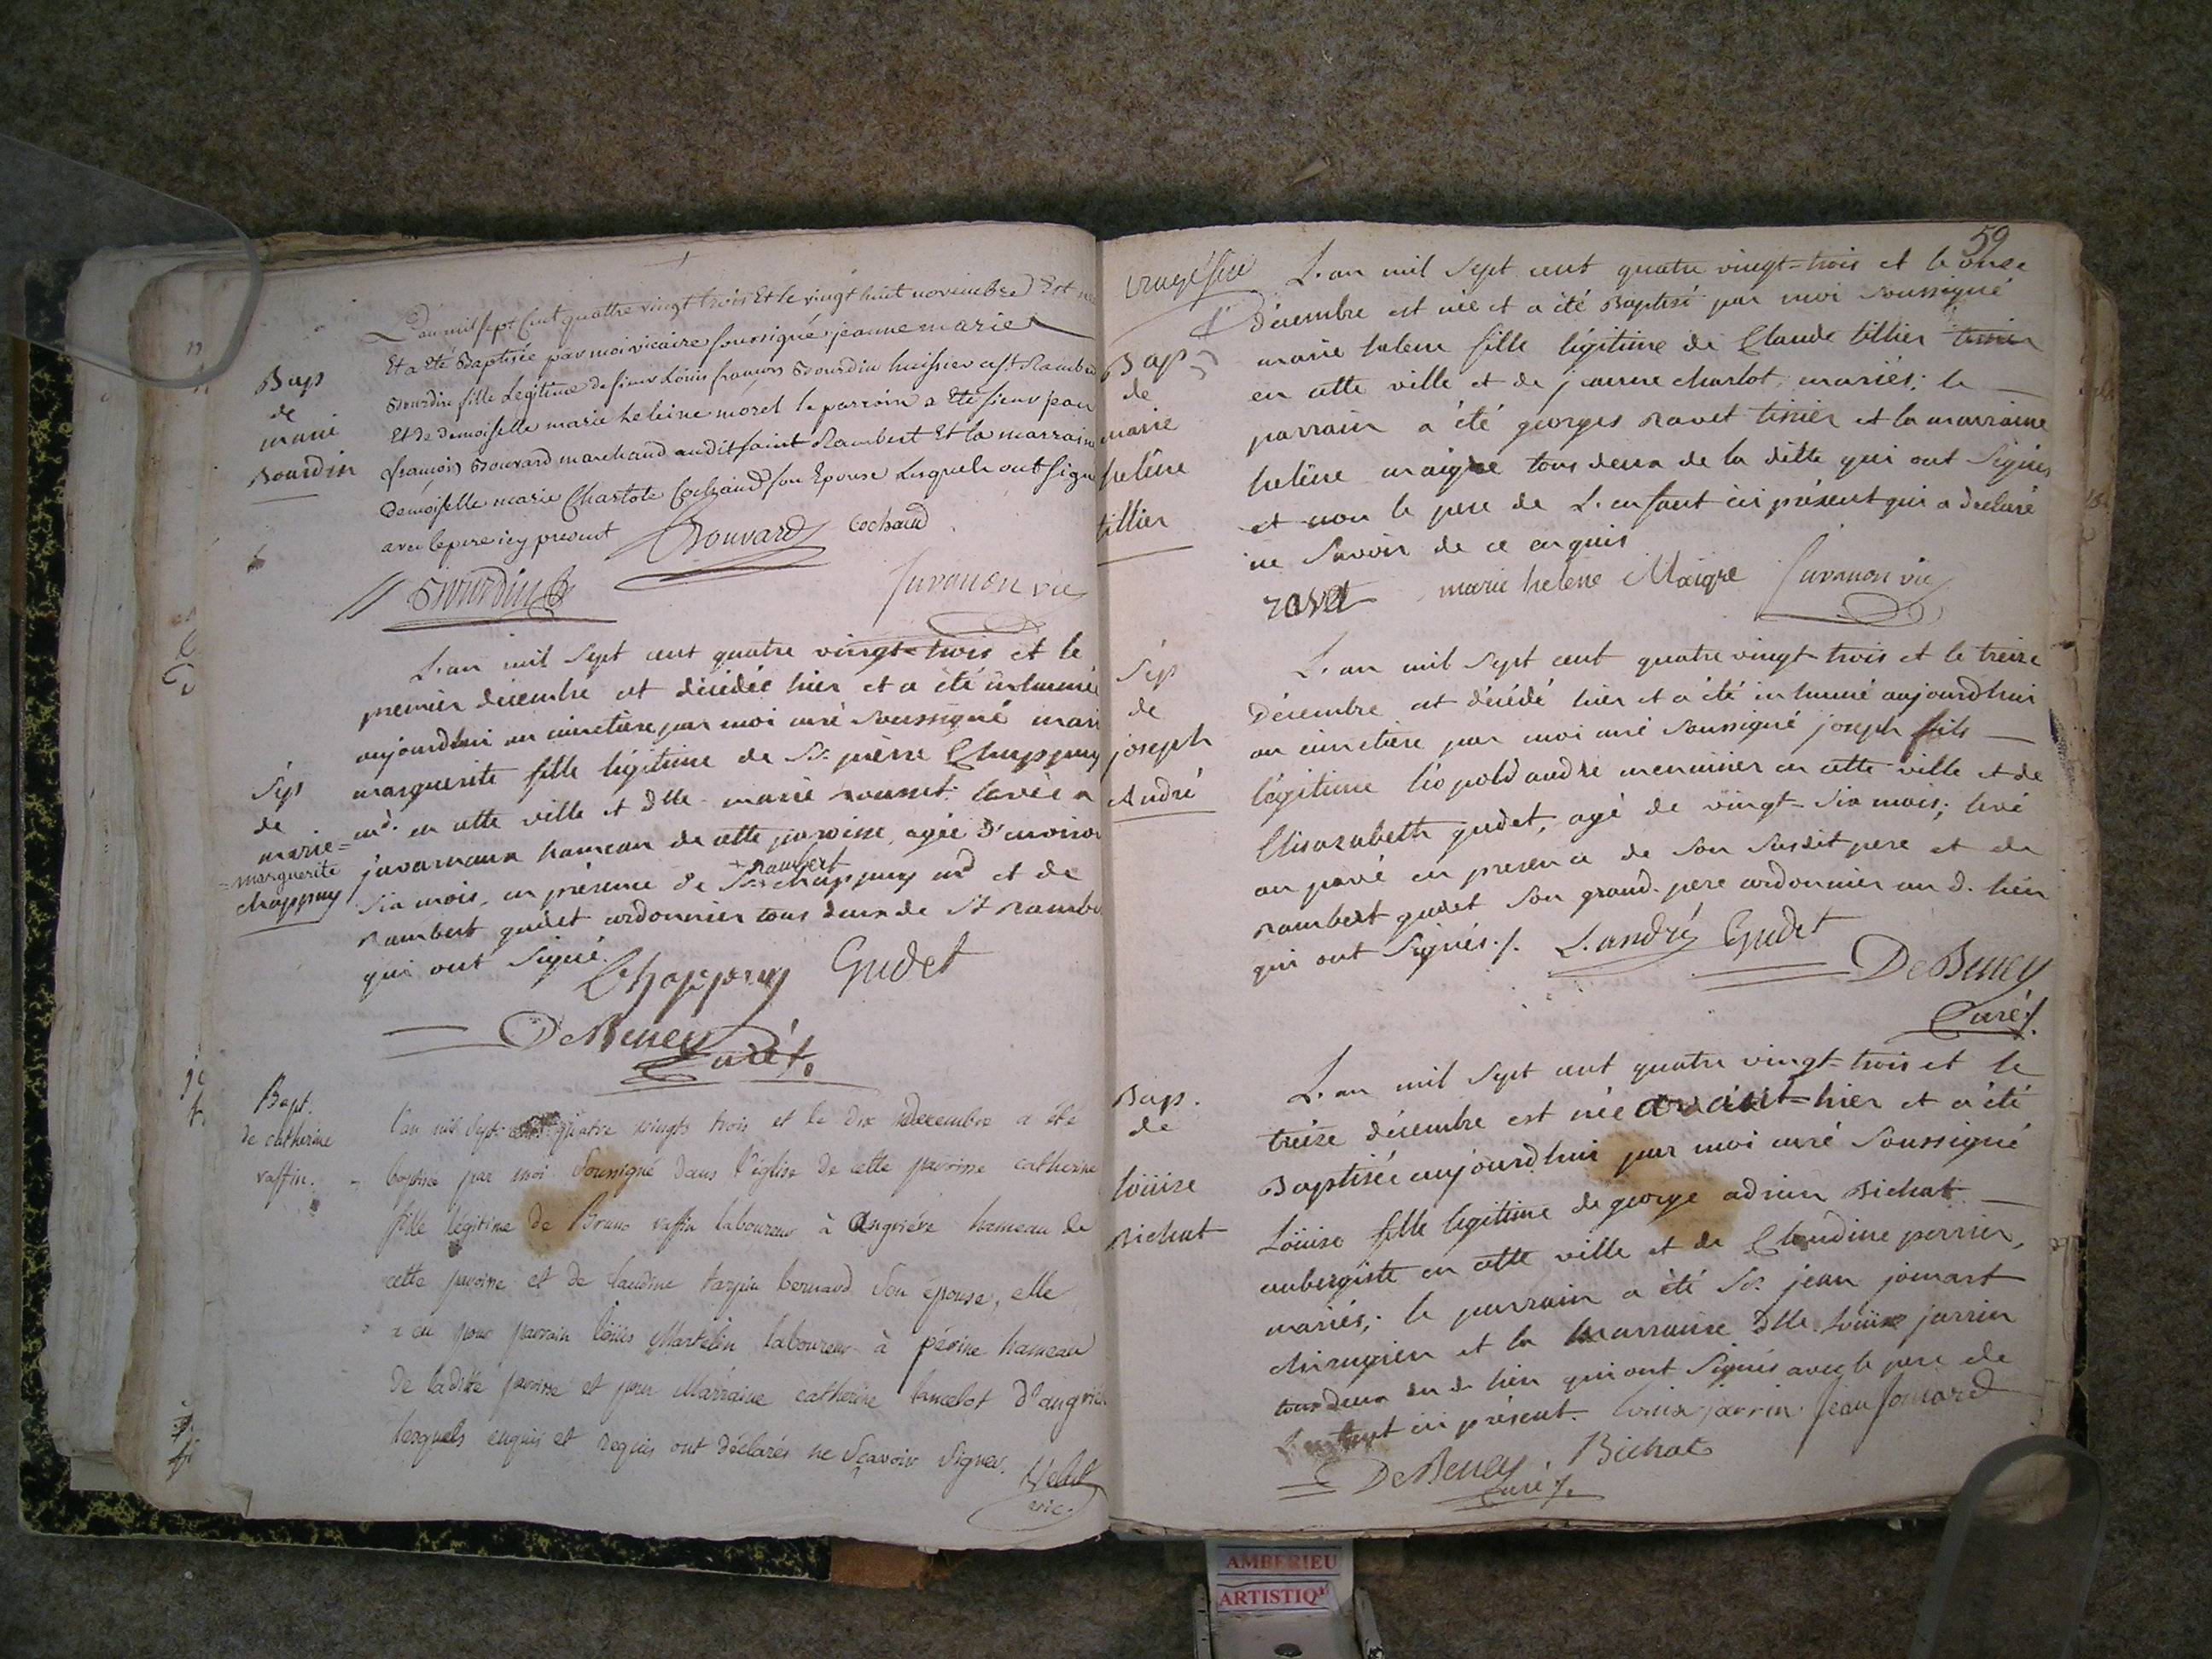 Bap
de
marie
Bourdin
L'an mil sept Cent quattre vingt trois Et le vingt huit novembre Est née
Et a Eté Baptisée par moi vicaire soussigné jeanne marie
Bourdin fille Legitime de sieur Loüis françois Bourdin huissier a st Rambert
Et de demoiselle marie heleine morel le parrain a Eté sieur jean
françois Bouvard marchand audit saint Rambert Et la marraine
demoiselle marie Charlote Cochaud son Epouse Lesquels ont signé
avec le pere icy present
Bouvard
Cochaud
Bourdin
Juvanon vic
Sep
de
marie=
=marguerite
chappuy
L'an mil sept cent quatre vingt-trois et le
premier décembre est décédée hier et a été inhumée
aujourdhui au cimetière par moi curé soussigné marie
marguerite fille légitime de Sr. pierre Chappuy
md. en cette ville et dlle marie rousset. levée a
javarnaux hameau de cette paroisse, agée d'environ
six mois, en présence de Sr. rambert chappuy md et de
Rambert gudet cordonnier tous deux de St Rambert
qui ont signé.
Chappuy
Gudet
De Beney
Curé
Bapt.
de catherine
vaffin.
l'an mil sept cent quatre vingts trois et le dix decembre a été
baptisée par moi soussigné dans l'église de cette paroisse catherine
fille légitime de Bruno vaffin laboureur à Angriére hameau de
cette paroisse et de claudine tarpin bernard son épouse, elle
a eu pour parrain loüis Martelin laboureur à hameau
de ladite paroisse et pour Marraine catherine lancelot d'
lesquels enquis et requis ont déclarés ne sçavoir signer.
vic.
59
Bap
de
marie
heléne
tillier
L'an mil sept cent quatre vingt-trois et le onze
décembre est née et a été Baptisé par moi soussigné
marie helene fille légitime de Claude tillier
en cette ville et de jeanne charlot, mariés; le
parrain a été georges ravet et la marraine
heléne maigre tous deux de la ditte qui ont signés
et non le pere de L'enfant ici présent qui a declaré
ne savoir de ce enquis
ravet
marie helene Maigre
Juvanon vic
Sep
de
joseph
André
L'an mil sept cent quatre vingt-trois et le treize
décembre est décédé hier et a été inhumé aujourdhui
au cimetière par moi curé soussigné joseph fils
légitime léopold andré menuisier en cette ville et de
Elisazabeth gudet, agé de vingt-six mois; levé
au pavé en presence de son susdit pere et de
rambert gudet son grand-pere cordonnier au d. lieu
qui ont signés./.
L. andré
Gudet
De Beney
Curé/.
Bap.
de
loüise
Bichat
L'an mil sept cent quatre vingt-trois et le
treize décembre est née avant-hier et a été
Baptisée aujourdhui par moi curé soussigné
Loüise fille legitime de george adrien Bichat
aubergiste en cette ville et de Claudine perrier,
mariés; le parrain a été Sr. jean jomart
chirugien et la marraine dlle. loüise jarrin
tous deux du d. lieu qui ont signés avec le pere de
L'enfant ici présent.
louise jarrin
Jean Jomard
De Beney
Curé/.
Bichat
AMBERIEU
ARTISTIQ